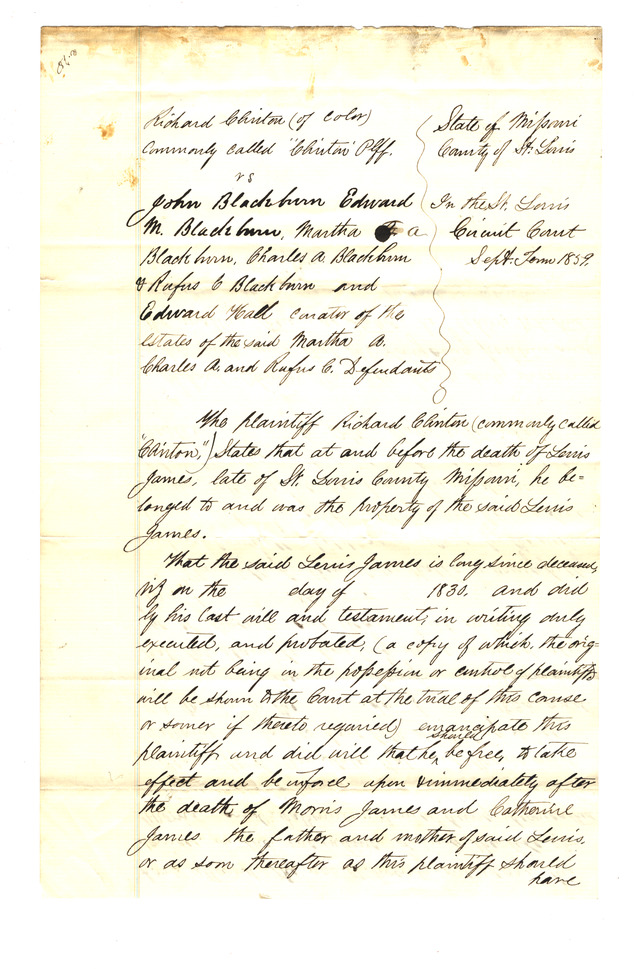 Richard Clinton (of color)
commonly called "Clinton" Plff.
vs
John Blackburn Edward
M. Blackburn, Martha a
Blackburn, Charles A. Blackburn
& Rufus C Blackburn and
Edward Hall curator of the
estates of the said Martha A.
Charles A. and Rufus C. Defendants
State of Missouri
County of St. Louis
In the St. Louis
Circuit Court
Sept. Term 1859.
The plaintiff Richard Clinton (commonly called
"Clinton,") States that at and before the death of Lewis
James, late of St. Louis County Missouri, he be=
longed to and was the property of the said Lewis
James.
That the said Lewis James is long since deceased,
viz on the day of 1830. and did
by his last will and testament, in writing duly
executed, and probated, (a copy of which, the orig-
inal not being in the possession or control of plaintiff
will be shown to the Court at the trial of this cause
or sooner if thereto required) emancipate this
plaintiff and did will that he should be free, to take
effect and be in force upon & immediately after
the death of Morris James and Catherine
James the father and mother of said Lewis,
or as soon thereafter as this plaintiff should
have